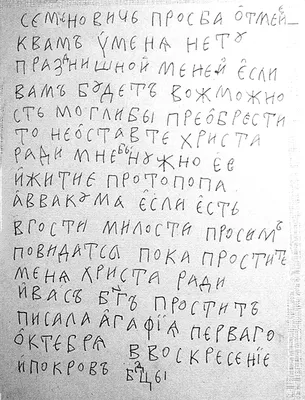 семеновичь просба ѿмен
квамъ ѹменѧ нетꙋ
празⷣнишной менеи есили
вамъ бꙋдетъ вожможно
сть моглибы преѡбрести
то неѡставте христа
ради мнебы нужно ее
ижитие протопопа
аввакума есили есть
вгости милости просимъ
повидатсѧ пока простите
менѧ христа ради
ивасъ бг҃ъ проститъ
писала агафіѧ перваго
ѡктебрѧ в воскресеніе
ипокровъ бⷣцы